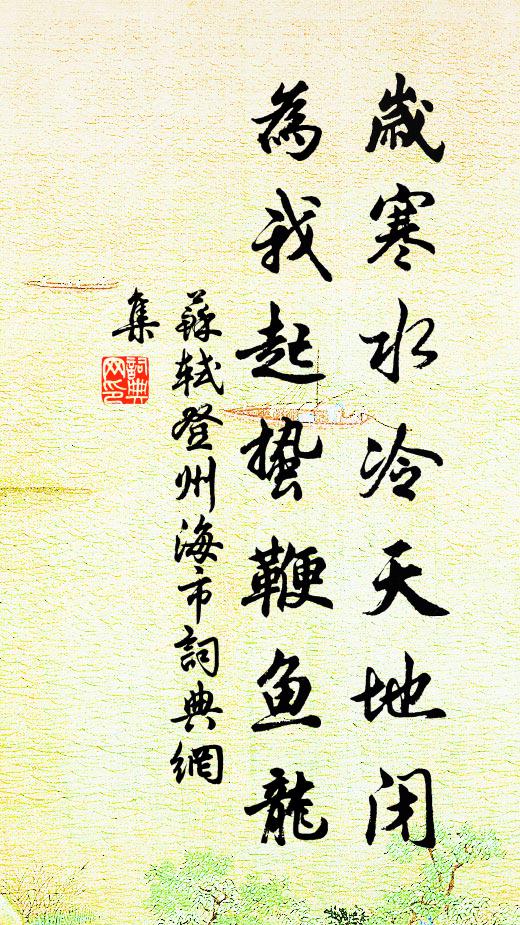 歲寒水冷天地闭
為我起蛰鞭鱼龍
蘇軾登州海市詞典網
集
詞典
网印